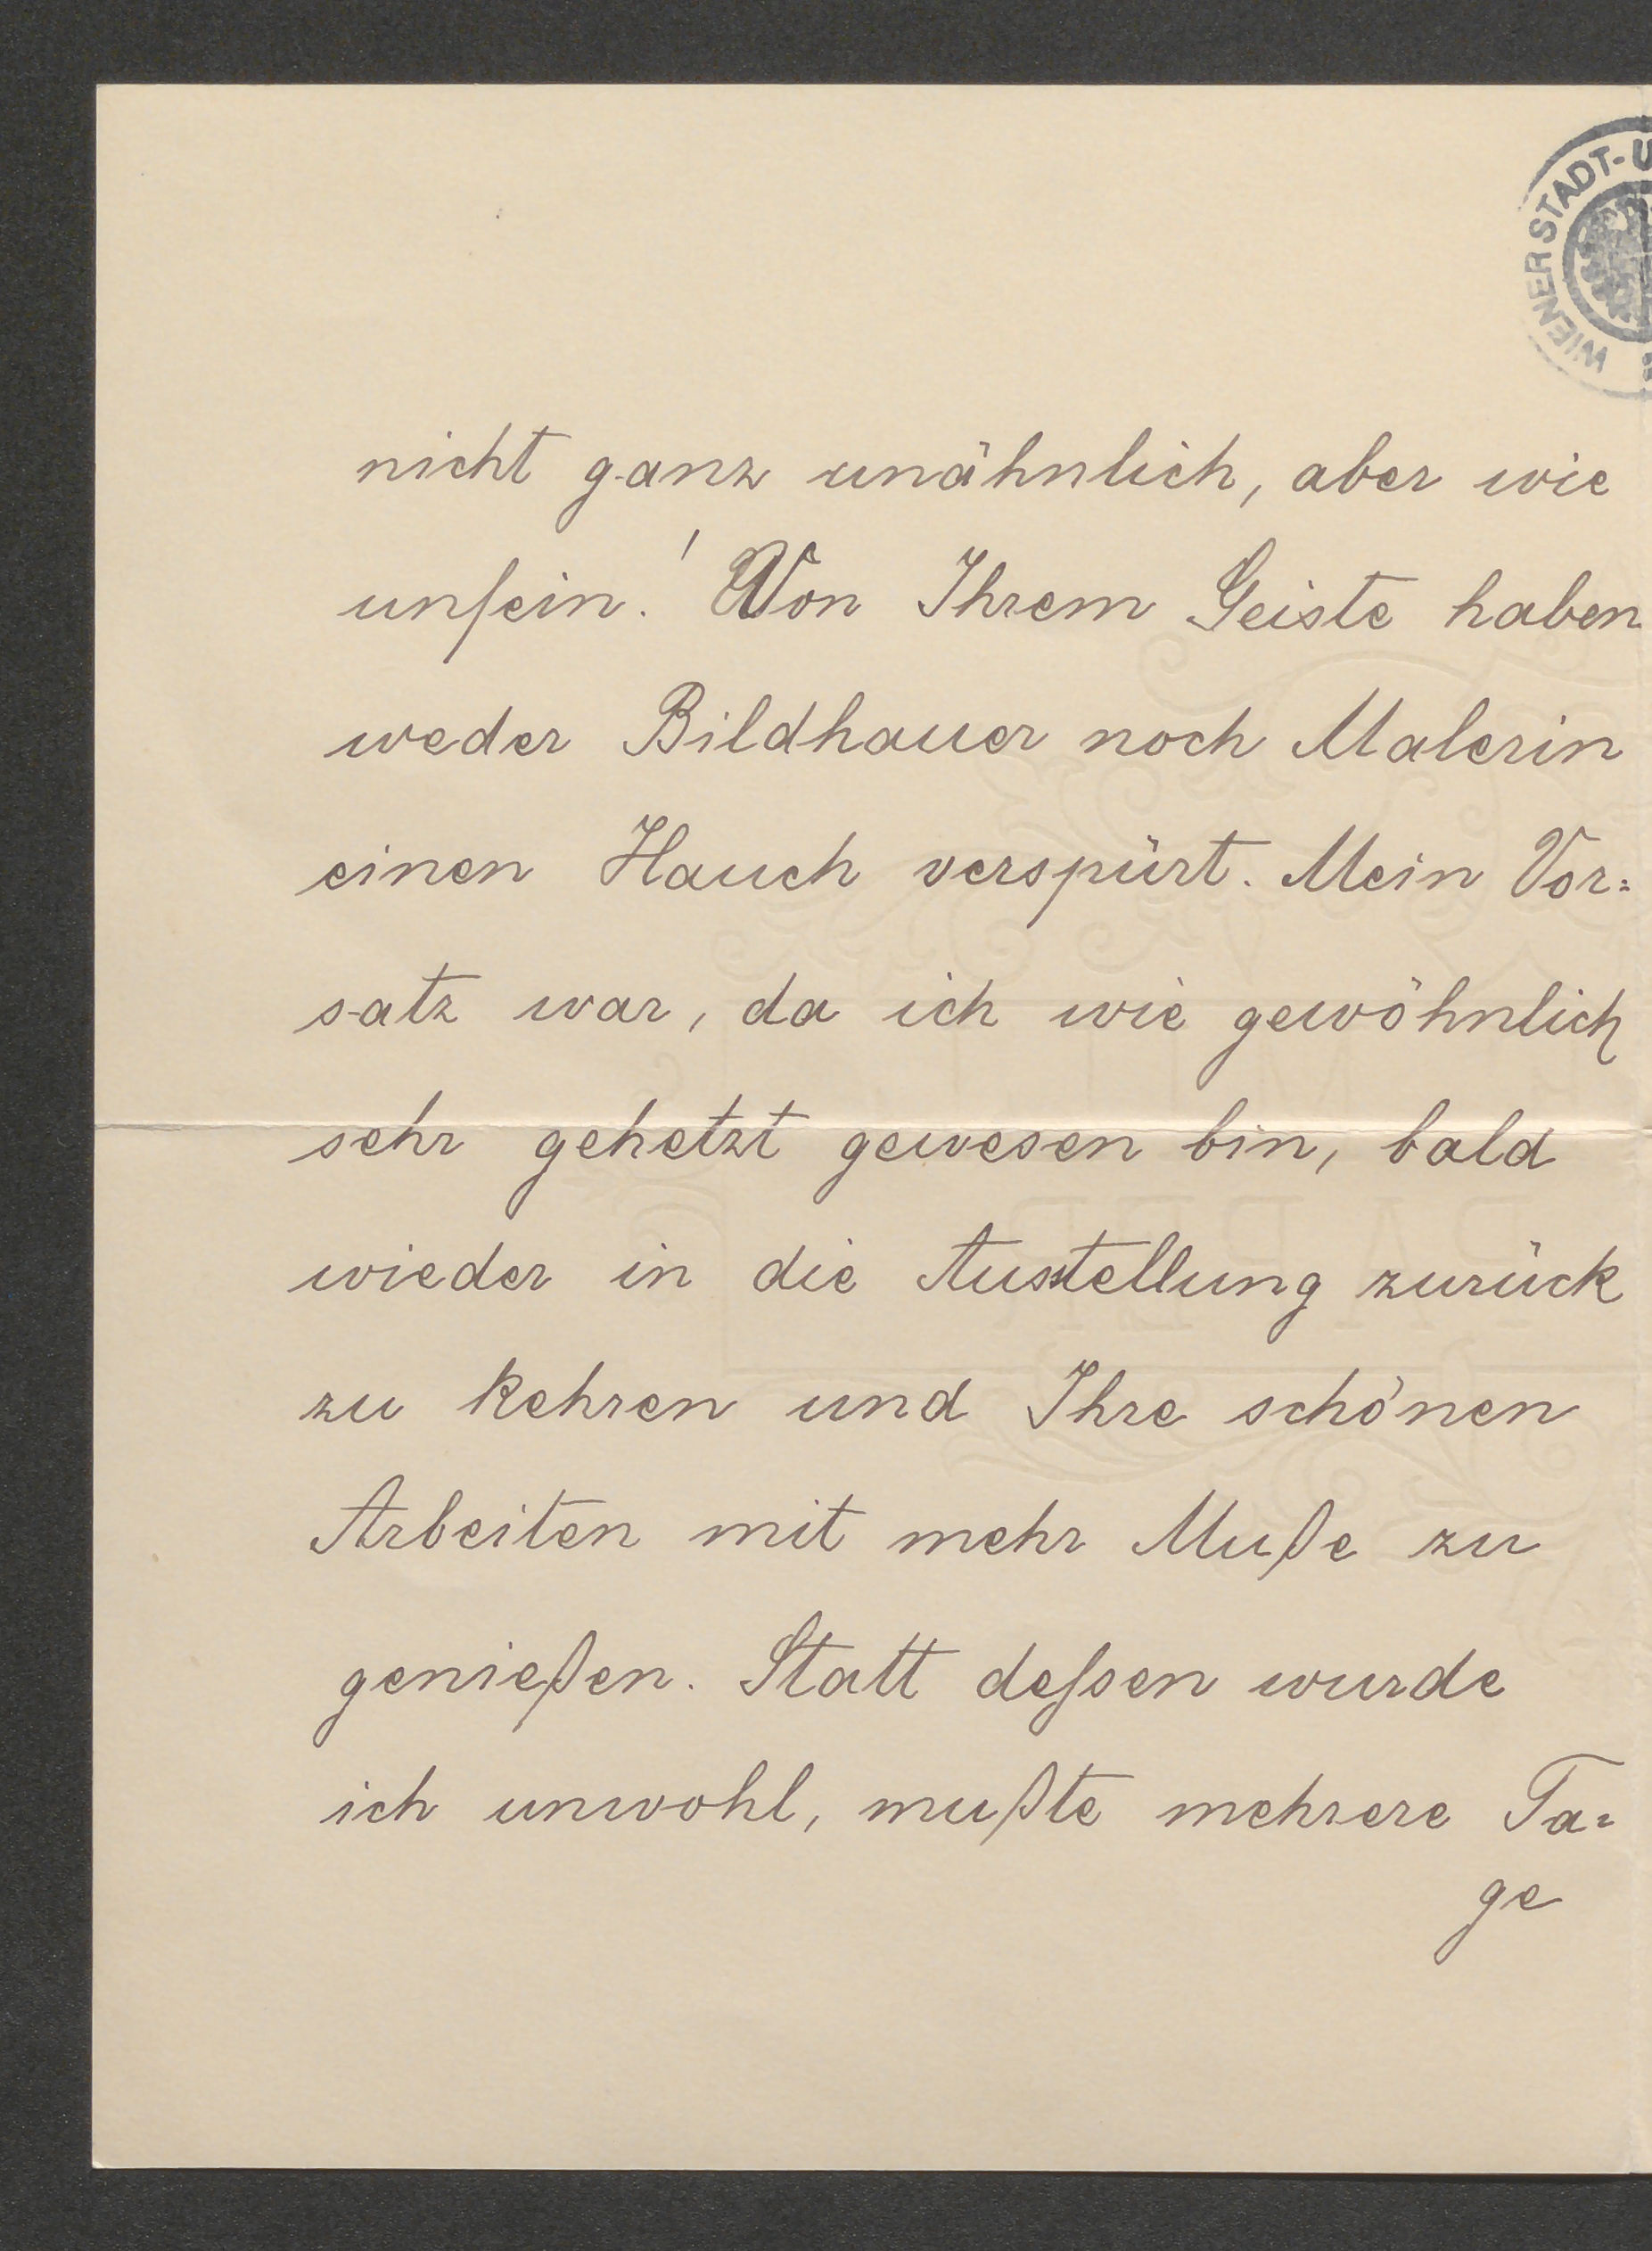 WIENER STADT- U
nicht ganz unähnlich, aber wie
unfein! Von Ihrem Geiste haben
weder Bildhauer noch Malerin
einen Hauch verspürt. Mein Vor=
satz war, da ich wie gewöhnlich
sehr gehetzt gewesen bin, bald
wieder in die Ausstellung zurück
zu kehren und Ihre schönen
Arbeiten mit mehr Muße zu
genießen. Statt deſsen wurde
ich unwohl, mußte mehrere Ta=
ge